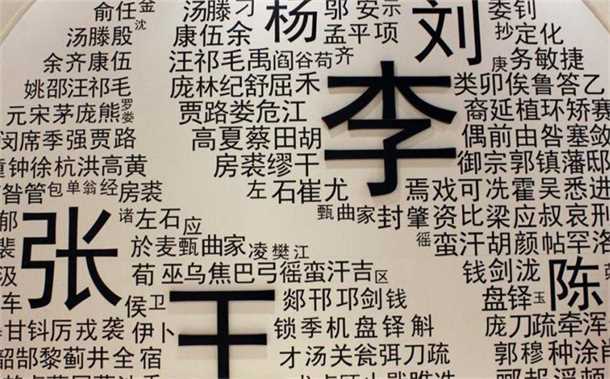 俞任金沈 汤滕刁 杨 邬安示 刘 娄钊
汤滕殷 康伍余 孟平项 抄定化
余齐康伍 汪祁毛禹阎谷荀齐 庚务敏捷
姚邵汪祁毛 庞林纪舒屈禾 李 类卯俟鲁答乙
元宋茅庞熊罗娄 贾路娄危江 裔延植环矫赛
闵席季强贾路 高夏蔡田胡 偶前由昝塞敛
童钟徐杭洪高黄 房裘缪干 御宗郭镇藩邸
昝管包单翁经房裘 左石崔尤 焉戏可冼霍吴悉进
郁 张 诸左石应 甄曲家封肇资比梁应叔哀邢
裴 於麦甄曲家凌樊江 徭蛮汗胡颜帖罕洛
汲 荀巫乌焦巴弓徭蛮汗吉区 钱剑泷 陈
车 侯卫 王 郯邗邛剑钱 盘铎玉
甘钭厉戎袭伊卜 锁季机盘铎斛 庞刀疏牵浑
韶郜黎蓟井全宿 才汤关瓮弭刀疏 郭穆种涂